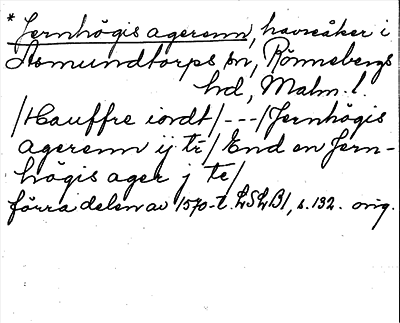 * Jernhögis agerenn, havreåker i
Asmundtorps sn, Rönnebergs
hd, Malm. l.
/Hauffre iordt/---/Jernhögis
agerenn ij te/ End en Jern-
högis ager j te/
förra delen av 1570-t. LSLB1, s. 132. orig.